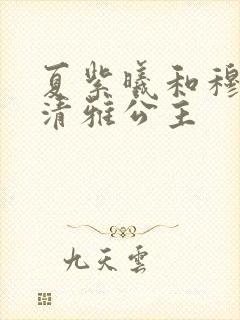 夏紫曦和穆
清雅公主
九天雲